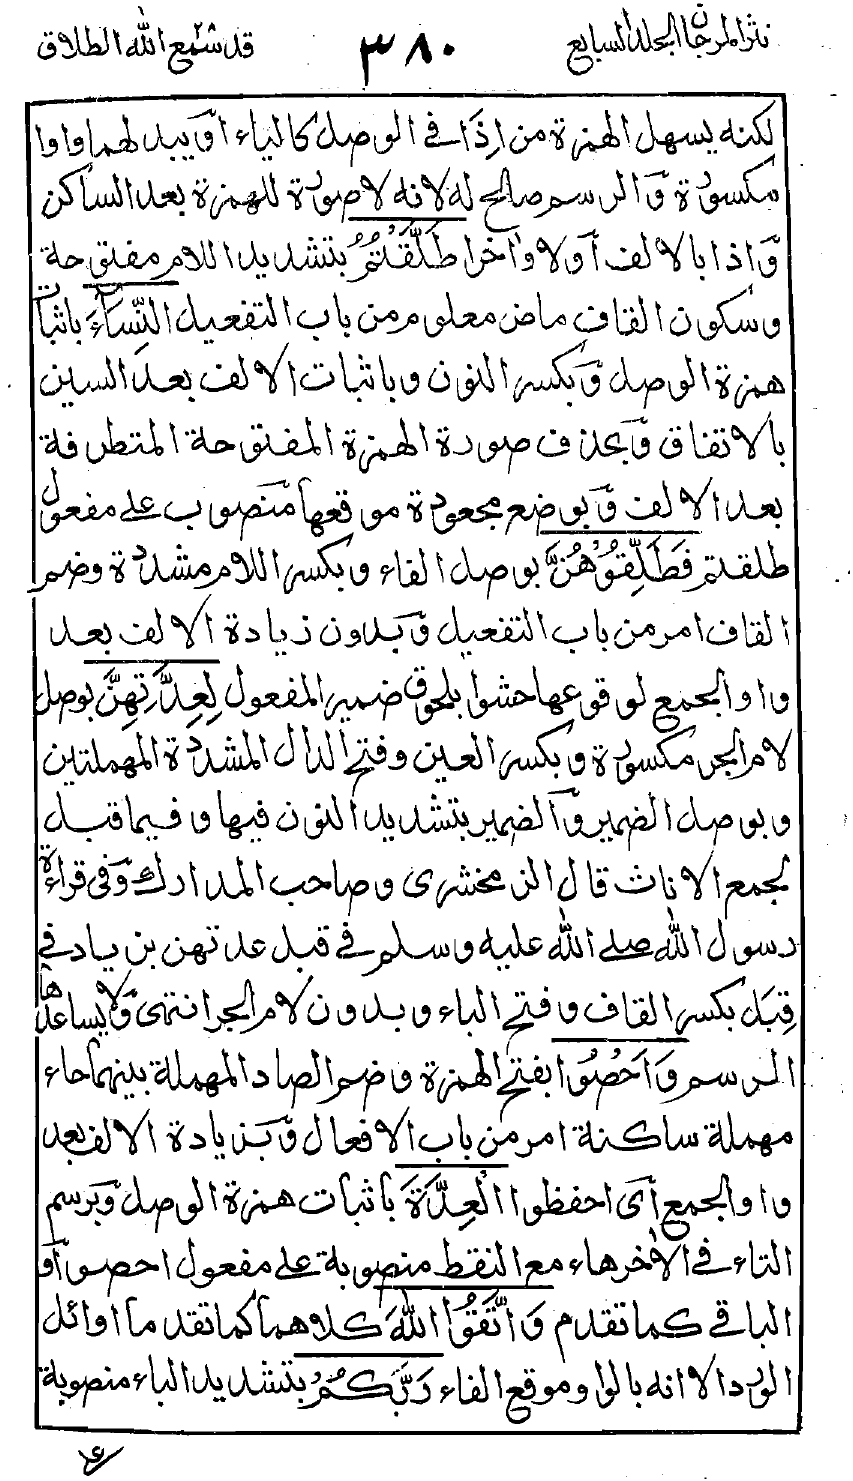 نثر المرجان المجلد السابع ٣٨٠ قد سمع الله ٢٨ الطلاق
لكنه يسهل الهمزة من اِذَا في الوصل كالياء اَو يبدلهما واوا
مكسورة وَالرسم صالح له لانه لا صورة للهمزة بعد الساكن
وَاذا بالالف اَولا وَاٰخرا طَلَّقْتُمُ بتشديد اللام مفتوحة
وسكون القاف ماض معلوم من باب التفعيل النِّسَآءَ باثبات
همزة الوصل وَبكسر النون وباثبات الالف بعد السين
بالاتفاق وَبحذف صورة الهمزة المفتوحة المتطرفة
بعد الالف وَبوضع مجعودة موقعها مَنصوب على مفعول
طلقتم فَطَلِّقُوْهُنَّ بوصل الفاء وبكسر اللام مشددة وضم
القاف امر من باب التفعيل وَبدون زيادة الالف بعد
واو الجمع لوقوعها حشوا بلحوق ضمير المفعول لِعِدَّتِهِنَّ بوصل
لام الجر مكسورة وبكسر العين وفتح الدال المشددة المهملتين
وبوصل الضمير وَالضمير بتشديد النون فيها وفيما قبل
لجمع الاناث قال الزمخشرى وصاحب المدارك وَفى قراءة
رسول الله صلى الله عليه وسلم في قبل عدتهن بزيادة في
قِبَل بكسر القاف وفتح الباء وبدون لام الجر انتهى وَلا يساعدها
الرسم وَاَحْصُوا بفتح الهمزة وضم الصاد المهملة بينهما حاء
مهملة ساكنة امر من باب الافعال وَبزيادة الالف بعد
واو الجمع اَى احفظوا الْعِدَّةَ بأثبات همزة الوصل وَبرسم
التاء في الاٰخر هاء مع النقط منصوبة على مفعول احصوا وَ
الباقي كما تقدم وَاتَّقُوا اللّٰهَ كلاهما كما تقدم مآ اوائل
الورد الا انه بالواو موقع الفاء رَبَّكُمْ بتشديد الباء منصوبة